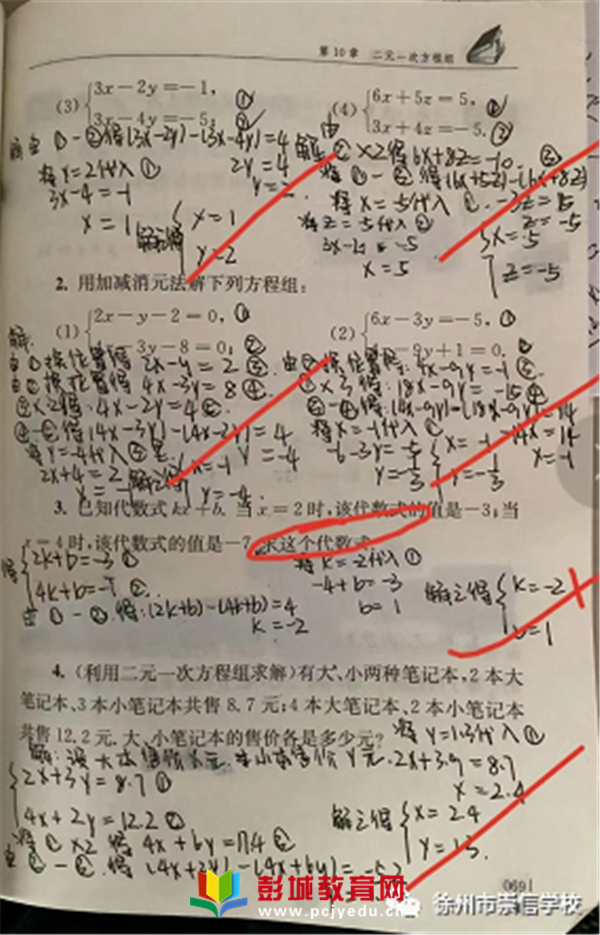 第10章 二元一次方程组
(3) 3x-2y=-1, ①
3x-4y=-5; ②
(4) 6x+5z=5, ①
3x+4z=-5. ②
由①-②得(3x-2y)-(3x-4y)=4
2y=4
y=2
将y=2代入①
3x-4=-1
x=1
解之得 x=1
y=2
②×2得6x+8z=-10 ③
将①-③得(6x+5z)-(6x+8z)
-3z=15
z=-5
3x-20=-5
x=5
x=5
z=-5
2. 用加减消元法解下列方程组:
(1) 2x-y-2=0, ①
3y-8=0; ②
(2) 6x-3y=-5, ①
9y+1=0. ②
2x-y=2 ③
4x-3y=8 ④
③×2得:4x-2y=4 ⑤
④-⑤得(4x-3y)-(4x-2y)=4
y=-4
将y=-4代入
2x+4=2
x=-1
y=-4
4x-9y=-1 ③
①×3得:18x-9y=-15 ④
③-④得:(4x-9y)-(18x-9y)=14
-14x=14
x=-1
将x=-1代入①
-6-3y=-5
y=-1/3
x=-1
y=-1/3
3. 已知代数式kx+b, 当x=2时,该代数式的值是-3;当
x=4时,该代数式的值是-7,求这个代数式.
得 2k+b=-3 ①
4k+b=-7 ②
由①-②得:(2k+b)-(4k+b)=4
k=-2
将k=-2代入①
-4+b=-3
b=1
解之得 k=-2
b=1
4. (利用二元一次方程组求解)有大、小两种笔记本,2本大
笔记本、3本小笔记本共售8.7元;4本大笔记本、2本小笔记本
共售12.2元. 大、小笔记本的售价各是多少元?
将y=1.3代入①
解:设大本售价x元,小本售价y元.
2x+3.9=8.7
x=2.4
2x+3y=8.7 ①
4x+2y=12.2 ②
解之得 x=2.4
y=1.3.
将①×2得 4x+6y=17.4 ③
由②-③得(4x+2y)-(4x+6y)=-5.2
069
彭城教育网
www.pcjyedu.cn
徐州市崇信学校